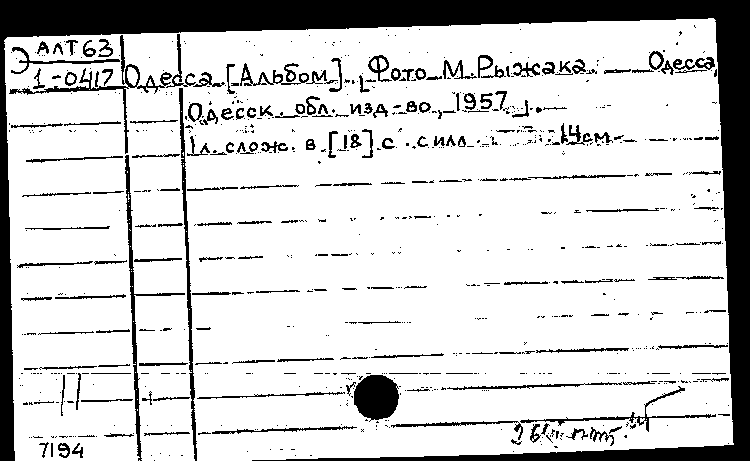 Э АЛТ63
1-0417 Одесса. [Альбом]. [Фото М. Рыжака. Одесса,
Одесск. обл. изд-во, 1957].
1 л. слож. в [18] с. с илл. 14 см.
7194